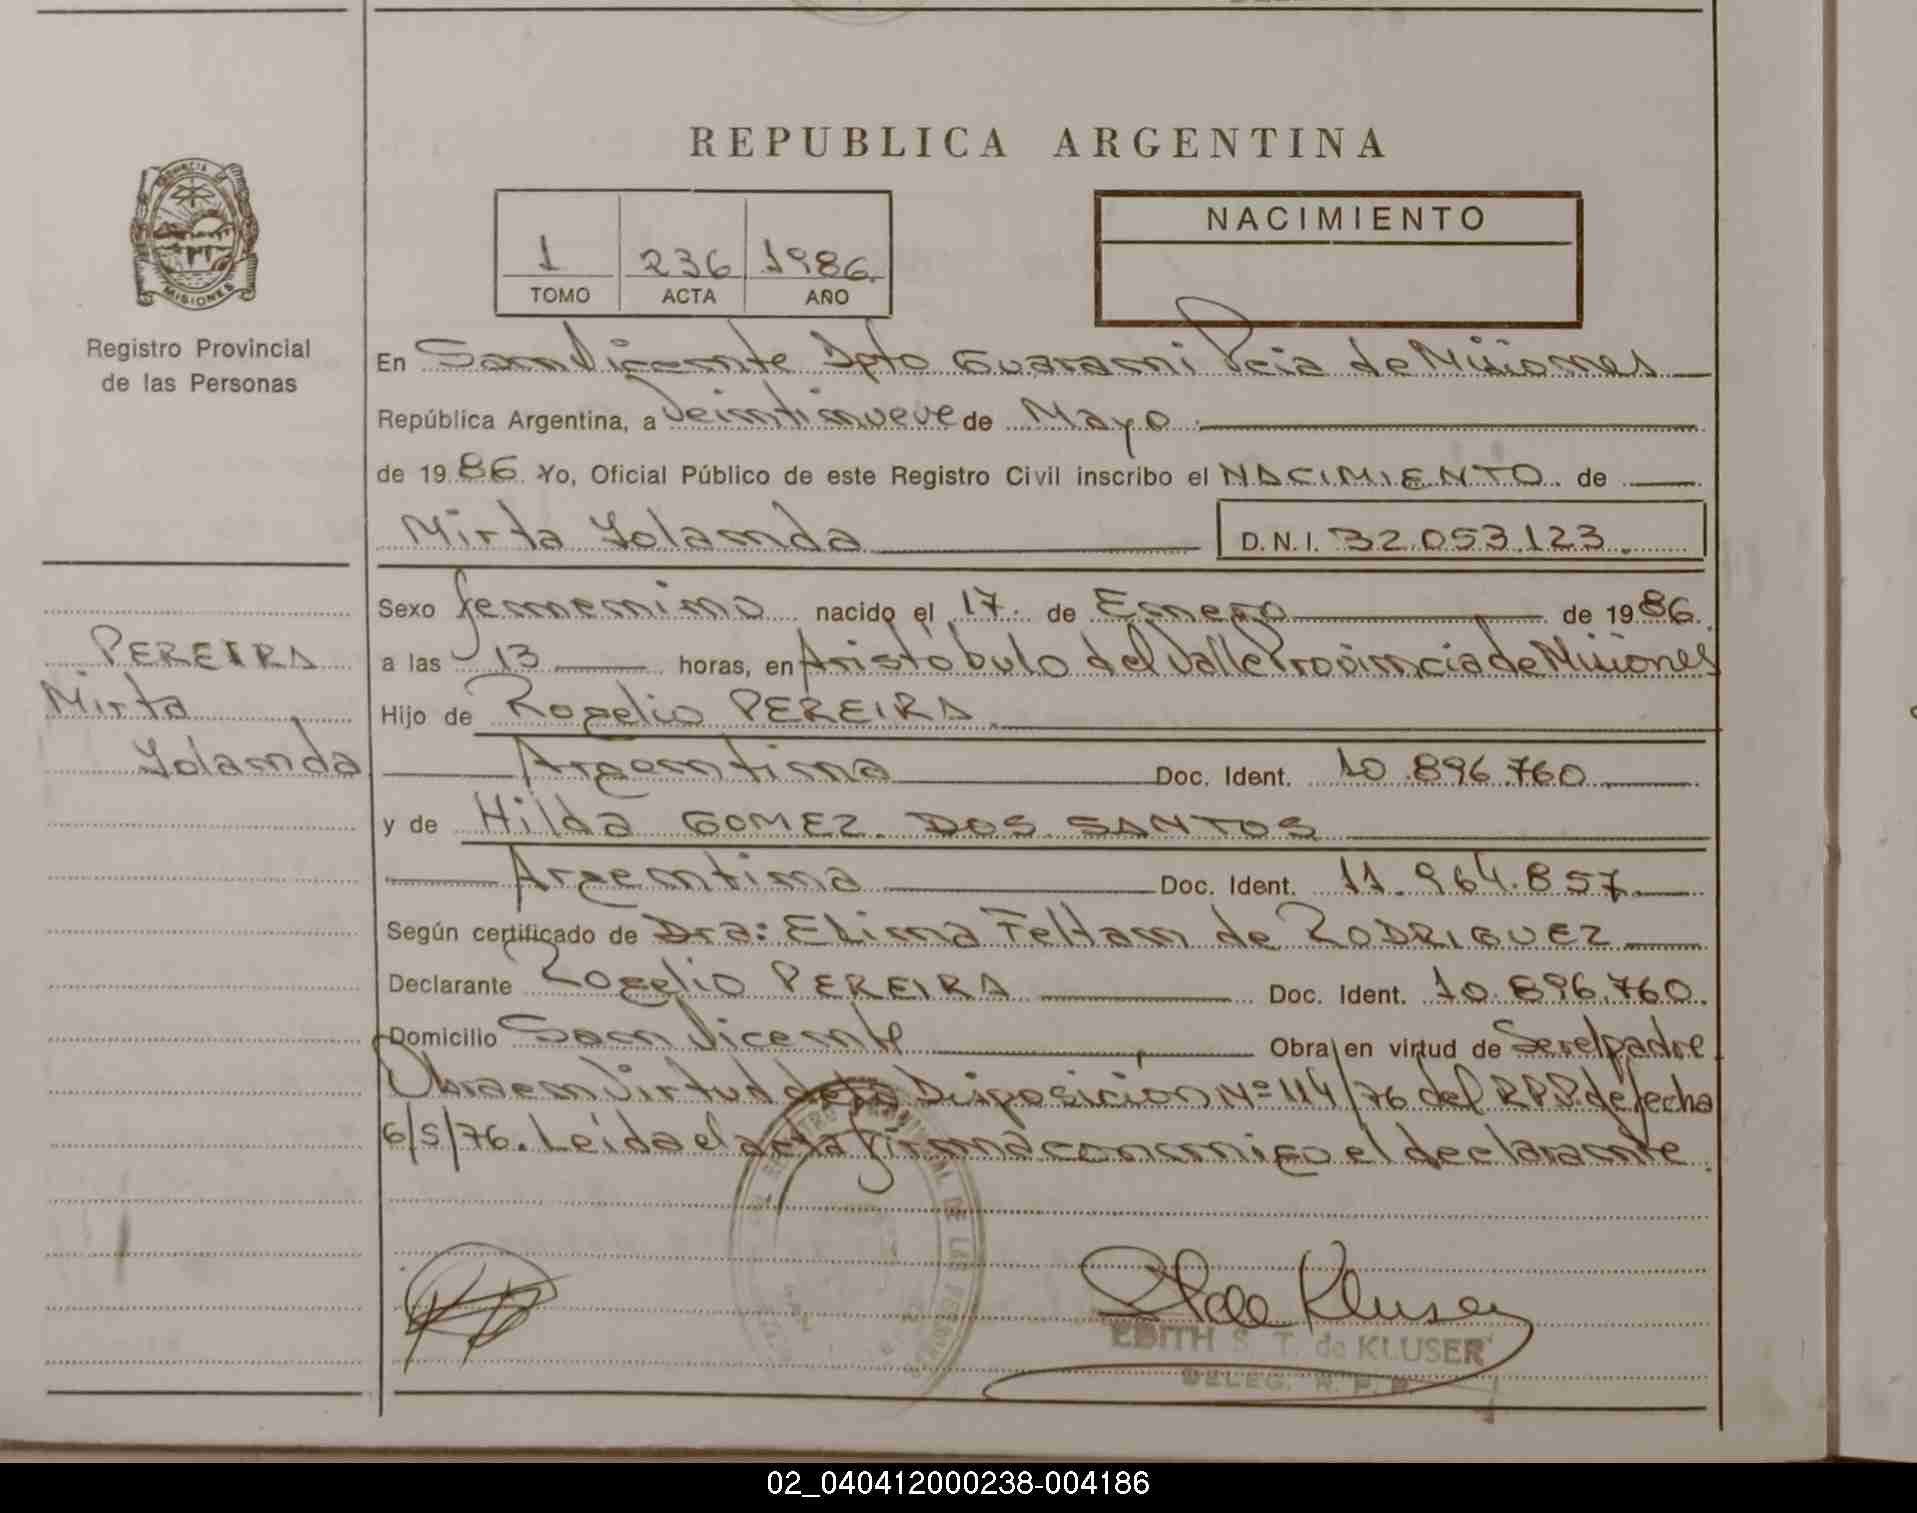 REPUBLICA ARGENTINA
PROVINCIA
MISIONES
Registro Provincial
de las Personas
1 236 1986
TOMO ACTA AÑO
NACIMIENTO
En San Vicente Dpto Guarani Pcia de Misiones
República Argentina, a Veintinueve de Mayo
de 1986 Yo, Oficial Público de este Registro Civil inscribo el NACIMIENTO de
Mirta Yolanda D.N.I. 32.053.123.
Sexo femenino nacido el 17. de Enero de 1986.
PEREIRA
Mirta
Yolanda
a las 13 horas, en Aristóbulo del Valle Provincia de Misiones
Hijo de Rogelio PEREIRA
Argentina Doc. Ident. 10.896.760
y de Hilda GOMEZ DOS SANTOS
Argentina Doc. Ident. 11.964.857
Según certificado de Dra: Elina Feltam de RODRIGUEZ
Declarante Rogelio PEREIRA Doc. Ident. 10.896.760.
Domicilio San Vicente Obra en virtud de Ser el padre
Obra en Virtud de la Disposición Nº 114/76 del R.P.P. de fecha
6/5/76. Leída el acta firma conmigo el declarante.
REGISTRO PROVINCIAL DE LAS PERSONAS
EDITH S. T. de KLUSER
DELEG. R. P. P.
02_040412000238-004186